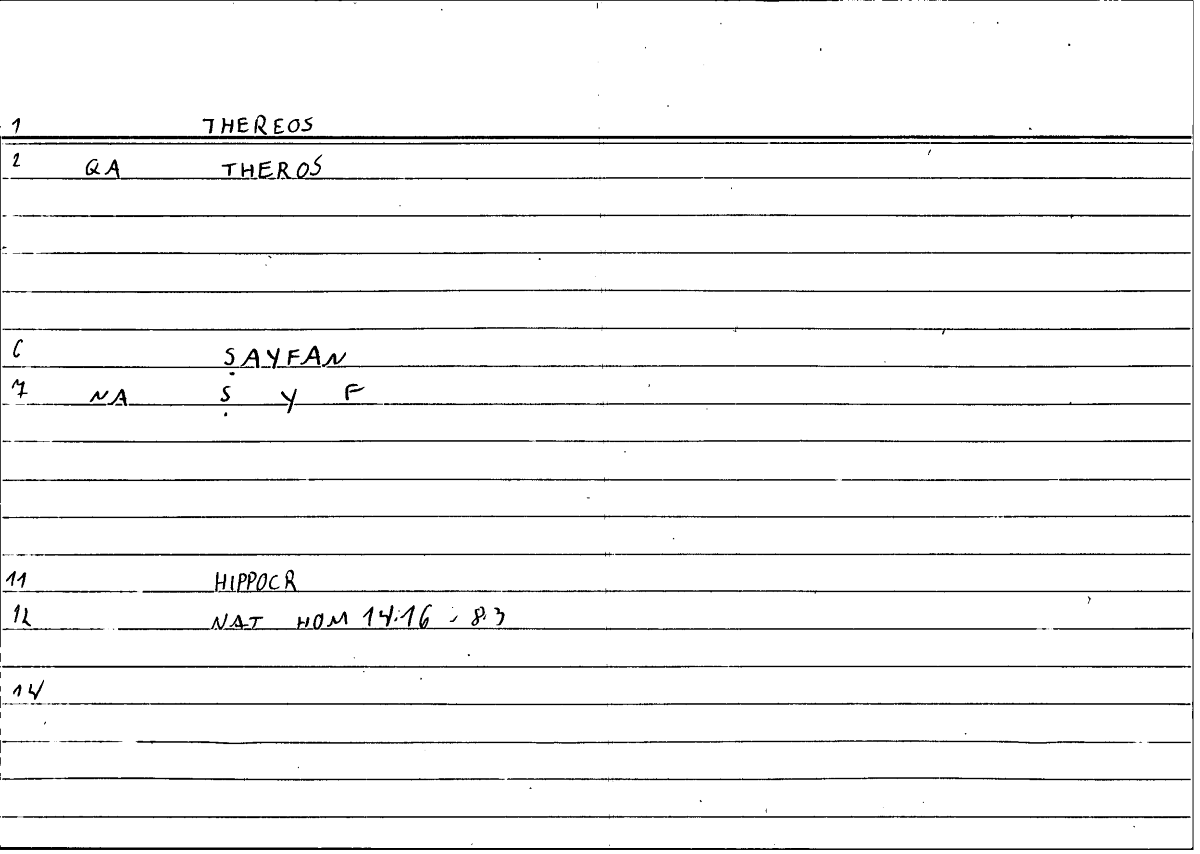 1 THEREOS
2 QA THEROS
6 ṢAYFAN
7 NA Ṣ Y F
11 HIPPOCR
12 NAT HOM 14.16 ; 8.3
14